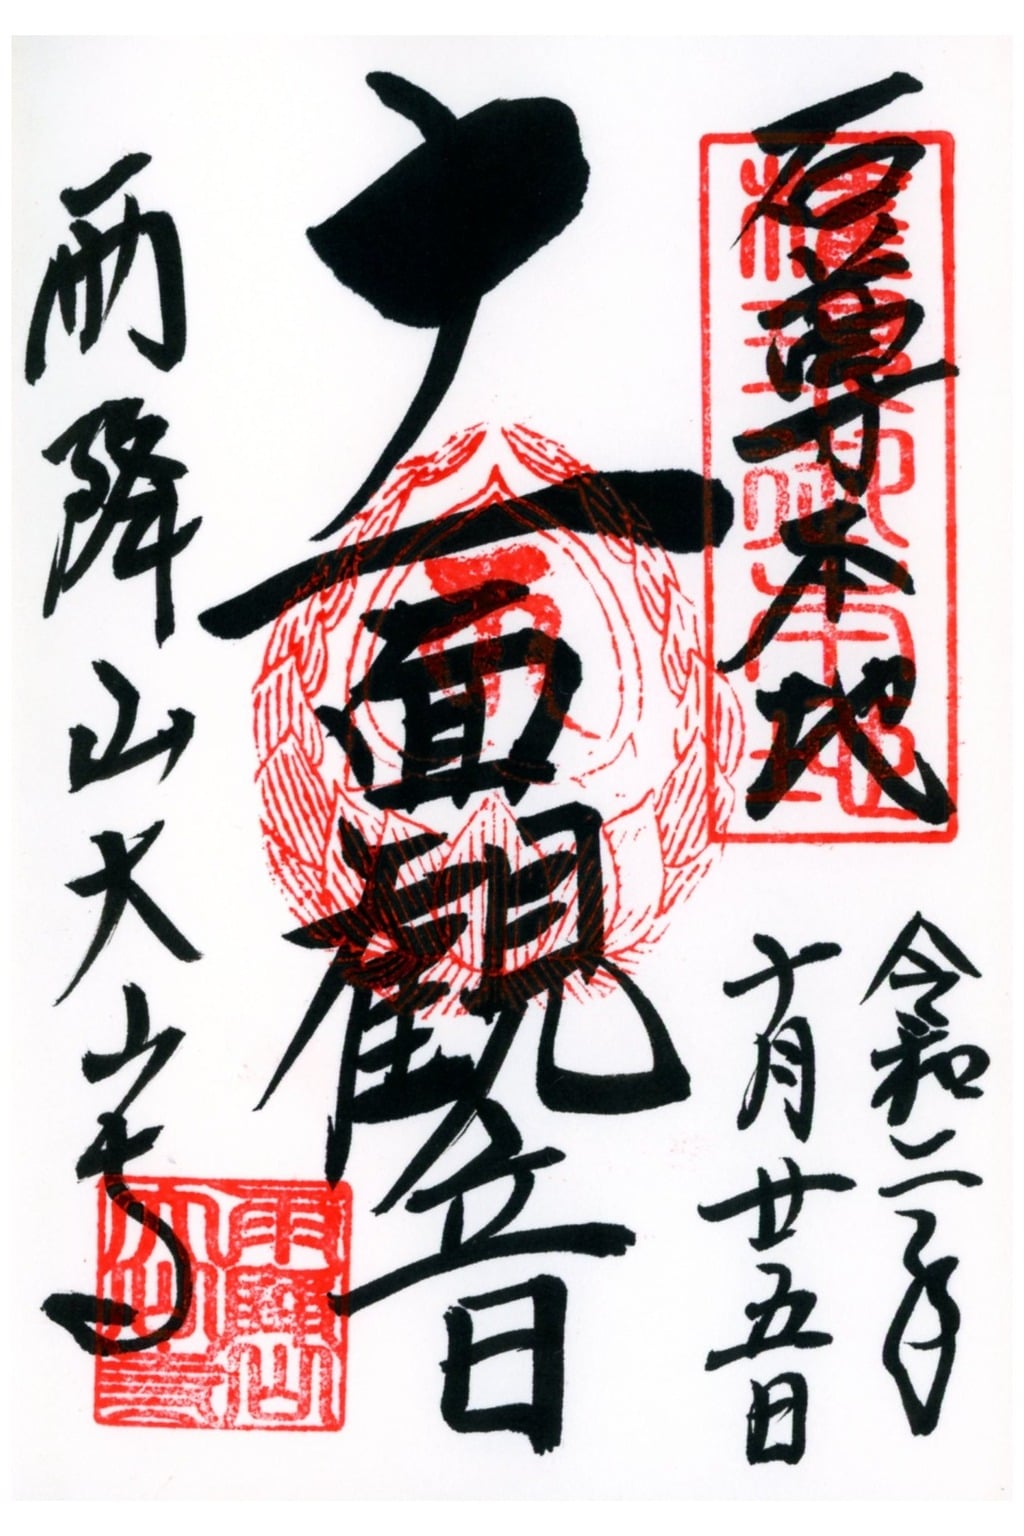 石尊本地
令和二年
十月廿五日
十一面観音
雨降山大山寺
雨降山
大山寺